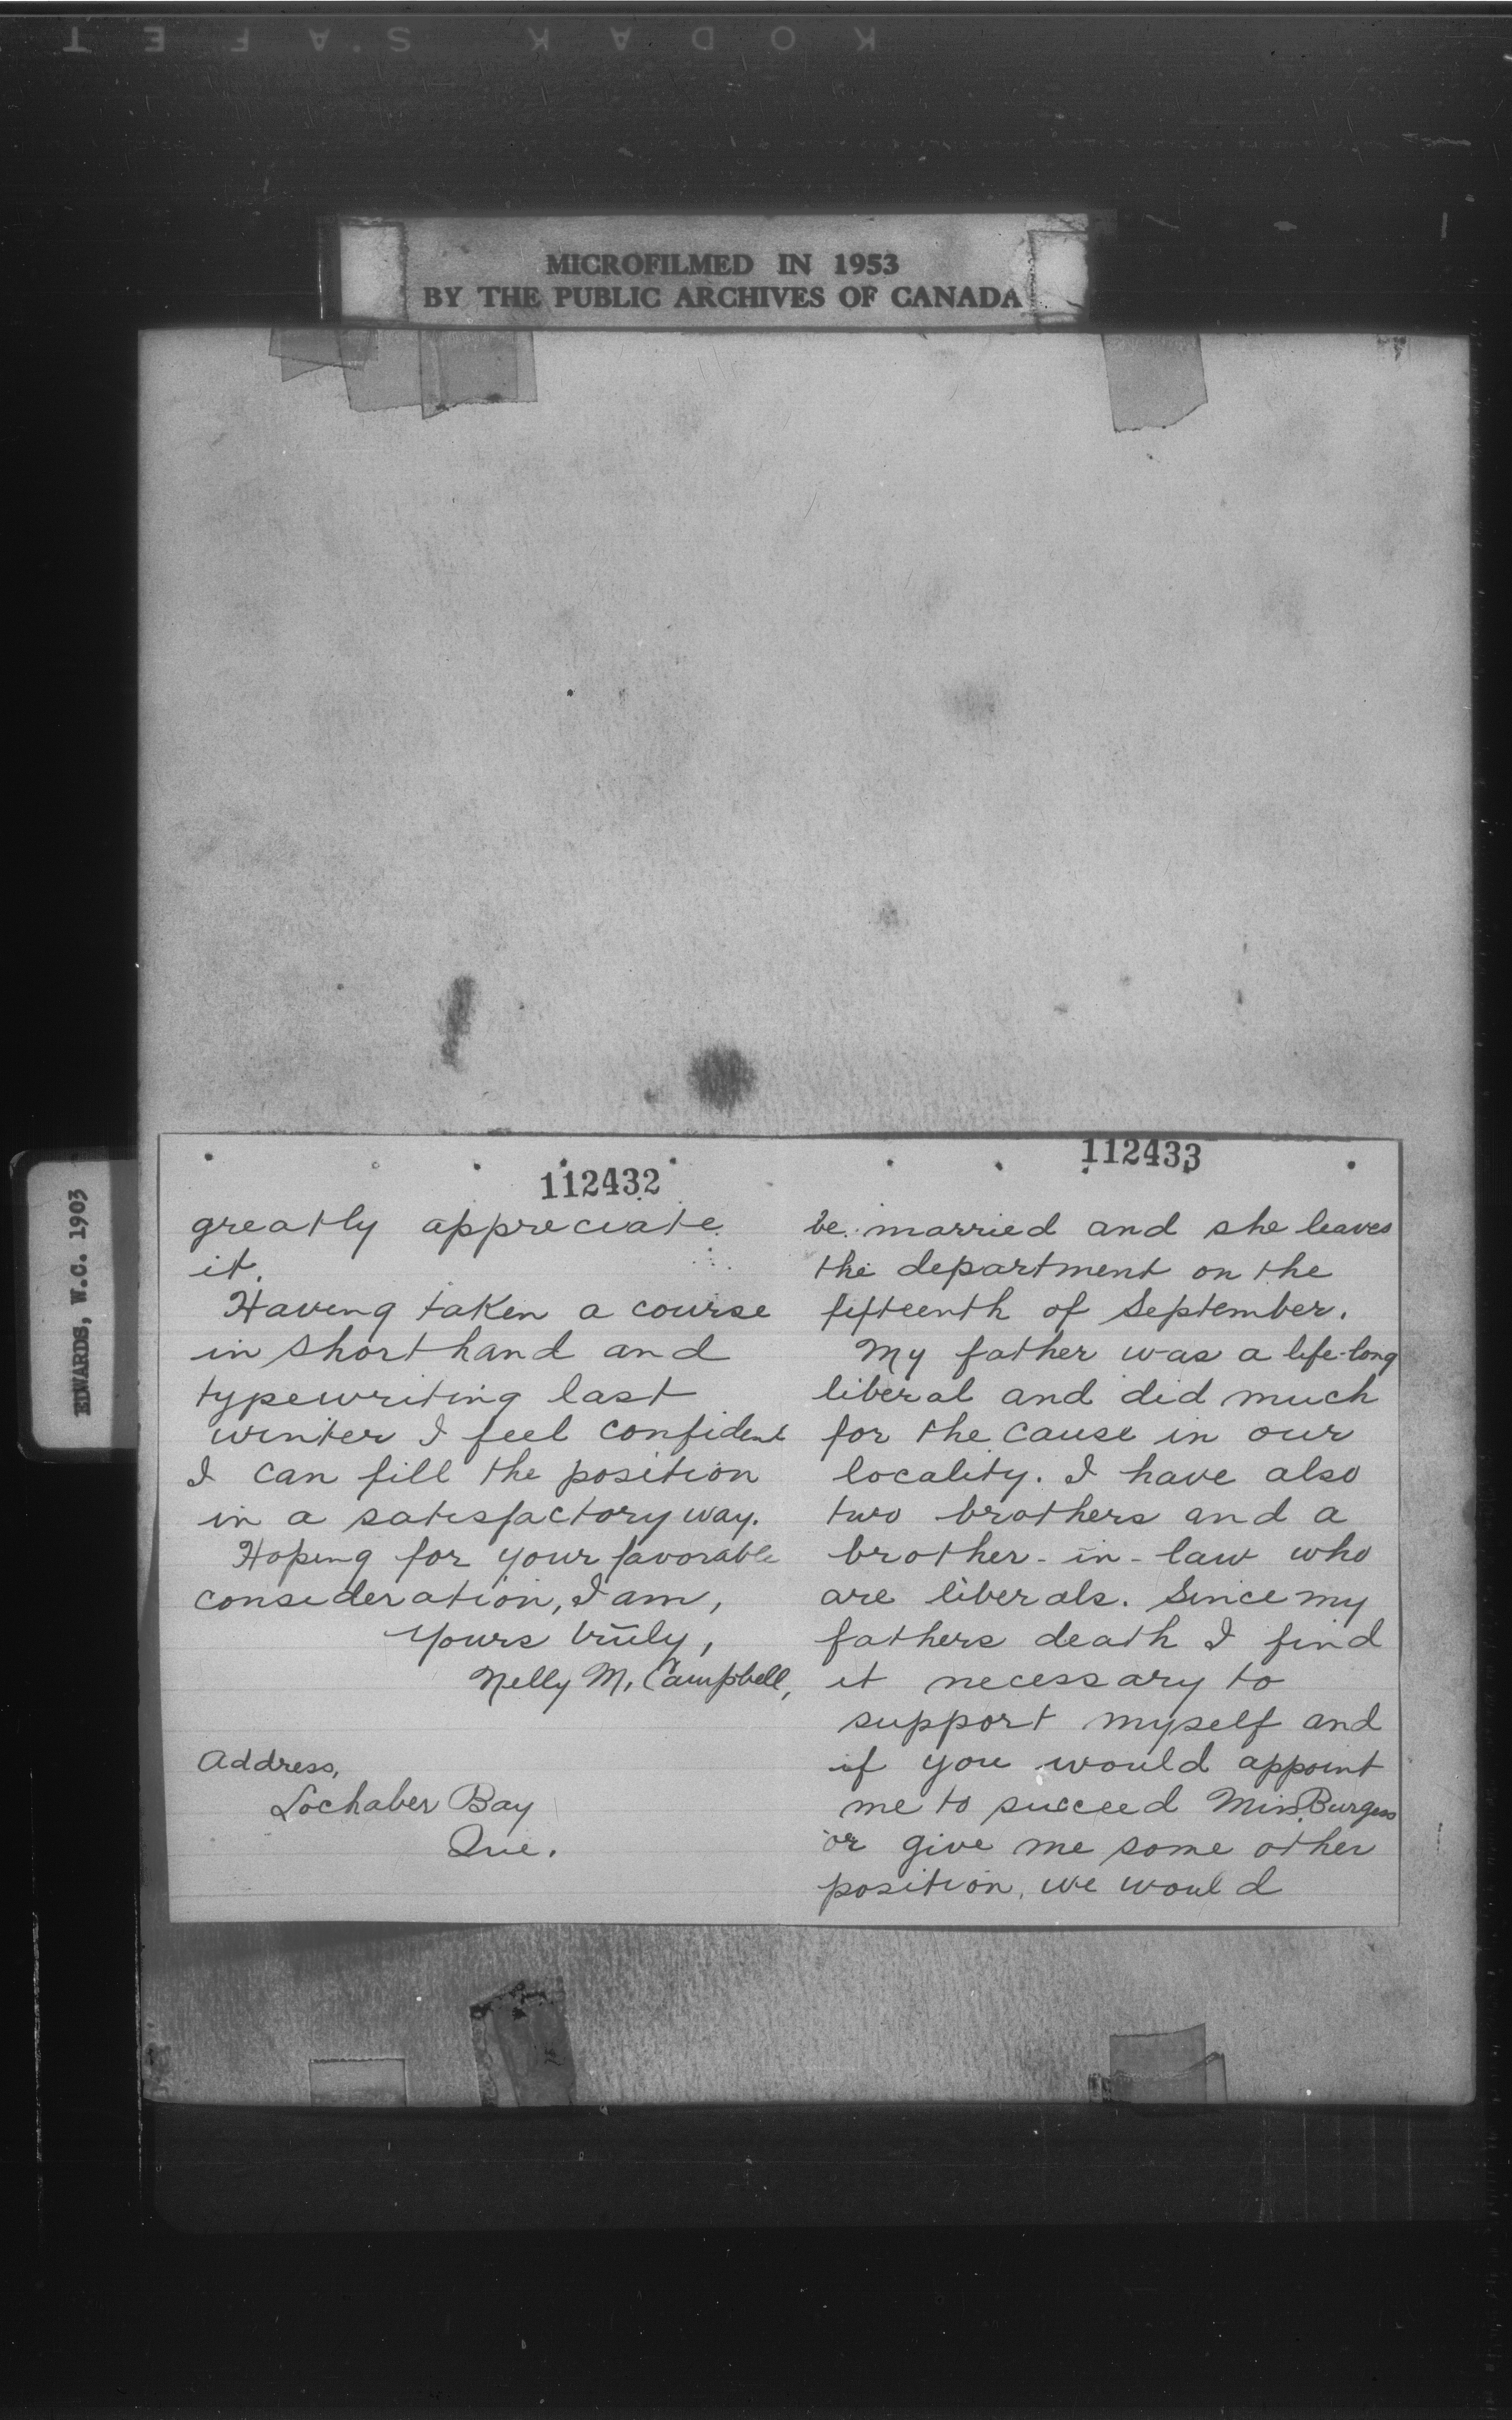 KODAK SAFET
MICROFILMED IN 1953
BY THE PUBLIC ARCHIVES OF CANADA
EDWARDS, W.C. 1903
112432
greatly appreciate
it.
Having taken a course
in shorthand and
typewriting last
winter I feel confident
I can fill the position
in a satisfactory way.
Hoping for your favorable
consideration, I am,
Yours truly,
Nelly M. Campbell,
Address,
Lochaber Bay
Que.
112433
be married and she leaves
the department on the
fifteenth of September.
My father was a life-long
liberal and did much
for the cause in our
locality. I have also
two brothers and a
brother-in-law who
are liberals. Since my
fathers death I find
it necessary to
support myself and
if you would appoint
me to succeed Miss Burgess
or give me some other
position, we would